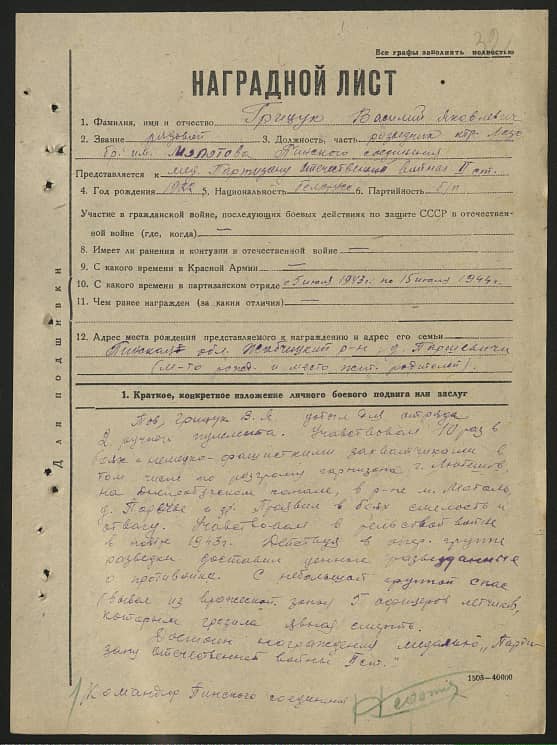 Все графы заполнить полностью
НАГРАДНОЙ ЛИСТ
1. Фамилия, имя и отчество Грицук Василий Яковлевич
2. Звание рядовой 3. Должность, часть разведчик
бр. им. Молотова Пинского соединения
Представляется к мед. Партизану Отечественной войны II ст.
4. Год рождения 5. Национальность белорус 6. Партийность б/п
Участие в гражданской войне, последующих боевых действиях по защите СССР в отечествен-
ной войне (где, когда) —
8. Имеет ли ранения и контузии в отечественной войне —
9. С какого времени в Красной Армии —
10. С какого времени в партизанском отряде с 5 июня 1943г. по 15 июля 1944г.
11. Чем ранее награжден (за какия отличия) —
12. Адрес места рождения представляемого к награждению и адрес его семьи
Пинская обл. Жабчицкий р-н д. Паршевичи
(м-то рожд. и место жит. родителей).
Для подшивки
1. Краткое, конкретное изложение личного боевого подвига или заслуг
Тов. Грицук В.Я. добыл для отряда
2 ручных пулемета. Учавствовал 10 раз в
боях с немецко-фашисткими захватчиками в
том числе по разгрому гарнизона г. Любешов,
на Днепробугском канале, в р-не м. Мотоль,
д. Поречье и др. Проявил в боях смелость и
отвагу. Учавствовал в рельсовой войне
в 1943г. Действуя в группе
разведки доставил ценные разведданные
о противнике. С небольшой группой спас
вывел из вражеской зоны 5 офицеров летчиков,
которым грозила явная смерть.
Достоин награждения медалью „Парти-
зану Отечественной войны II ст."
Командир Пинского соединения
1503—40000